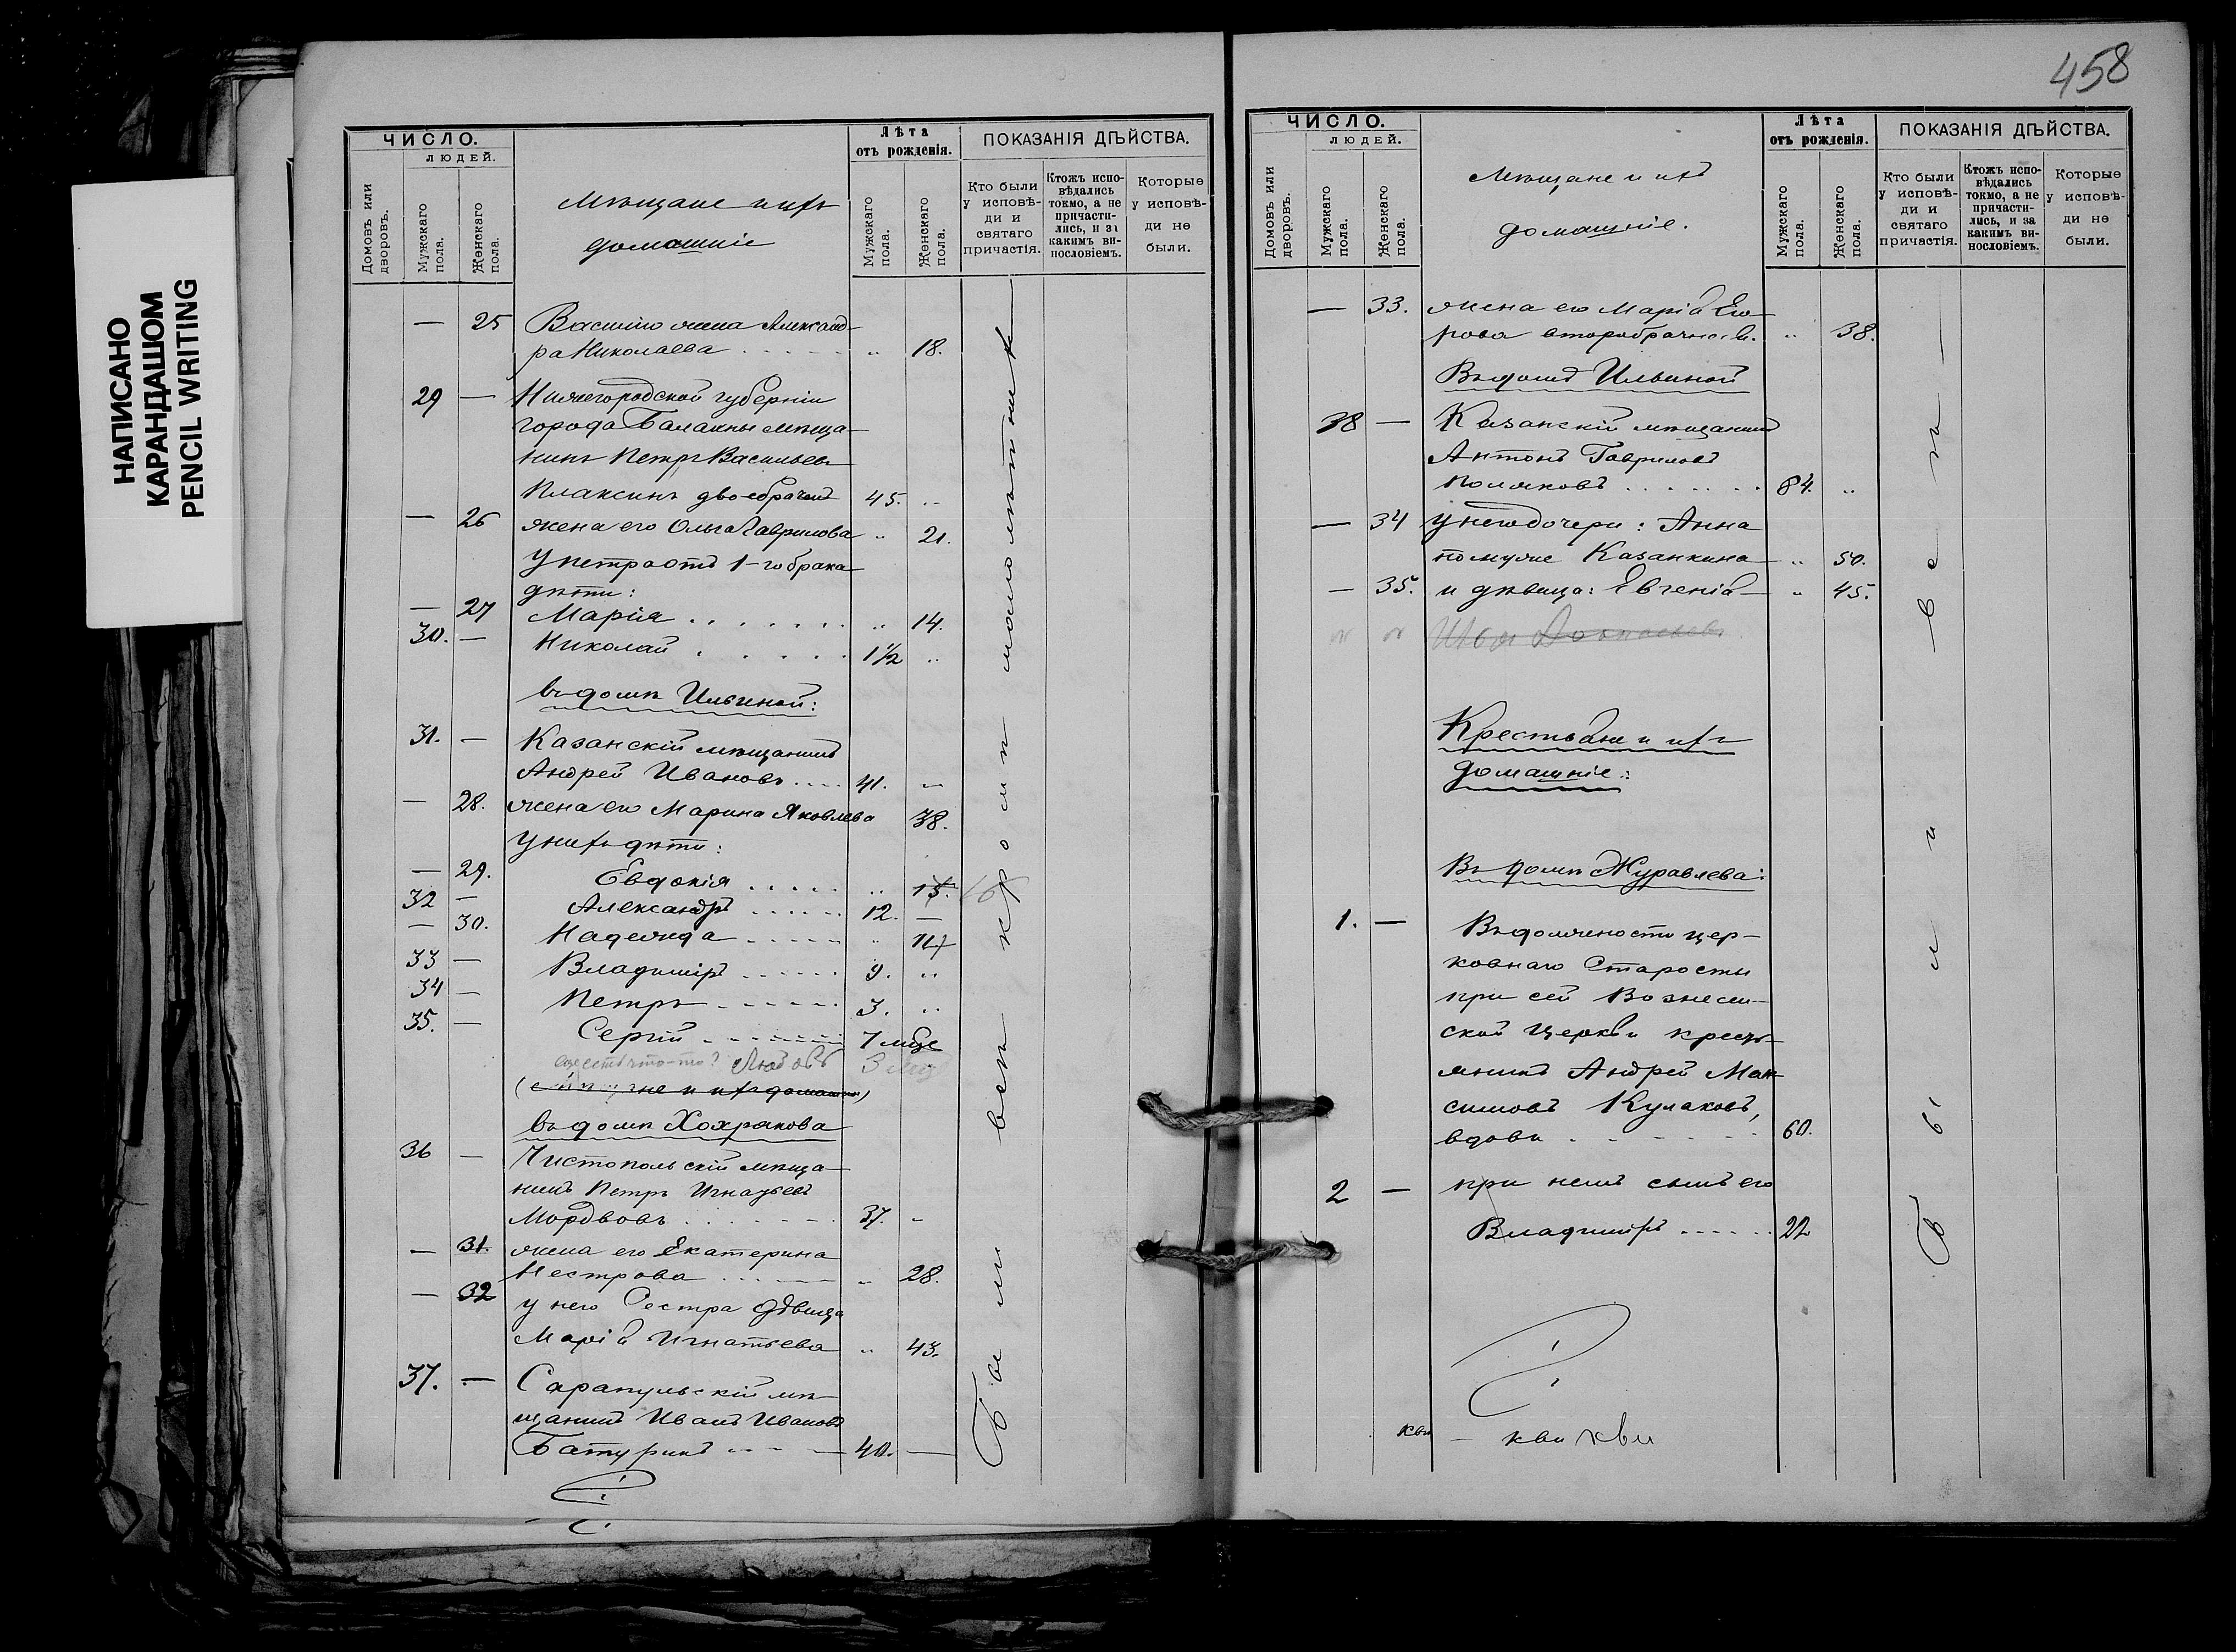 НАПИСАНО
КАРАНДАШОМ
PENCIL WRITING
ЧИСЛО.
ЛЮДЕЙ.
Домовъ или дворовъ.
Мужскаго пола.
Женскаго пола.
Мѣщане и ихъ
домашніе
Лѣта
отъ рожденія.
Мужскаго пола.
Женскаго пола.
ПОКАЗАНІЯ ДѢЙСТВА.
Кто были у исповѣ-ди и святаго причастія.
Ктожъ испо-вѣдались токмо, а не причасти-лись, и за какимъ ви-нословіемъ.
Которые у исповѣ-ди не были.
— 25 Василію жена Александ-
ра Николаева . . . . „ 18.
29 — Нижегородской губерніи
города Балахны мѣща-
нинъ Петръ Васильевъ
Плаксинъ двоебрачный 45. „
— 26 жена его Ольга Гаврилова „ 21.
У петра отъ 1-го брака
дѣти:
— 27 Марія . . . . . . „ 14.
30. — Николай . . . . . 1½ „
въ домѣ Ильиной:
31. — Казанскій мѣщанинъ
Андрей Ивановъ . . . 41. „
— 28. жена его Марина Яковлева 38.
У нихъ дѣти:
— 29. Евдокія . . . . . „ 15. 16
32 — Александръ . . . . . 12. —
— 30. Надежда . . . . . „ 11
33 — Владиміръ . . . . . 9. „
34 — Петръ . . . . . 3. „
35. — Сергій . . . . . 7 мѣс
еще есть что-то? Любовь 3
въ домѣ Хохрякова
36 — Чистопольскій мѣща-
нинъ Петръ Игнатьевъ
Мордвовъ . . . . . 37. „
— 31. жена его Екатерина
Нестрова . . . . . „ 28.
— 32 у него Сестра дѣвица
Марія Игнатьева „ 43.
37. — Сарапульскій мѣ-
щанинъ Иванъ Ивановъ
Батуринъ . . . — 40. —
Были всѣ кромѣ малолѣтнихъ
458
ЧИСЛО.
ЛЮДЕЙ.
Домовъ или дворовъ.
Мужскаго пола.
Женскаго пола.
Мѣщане и ихъ
домашніе.
Лѣта
отъ рожденія.
Мужскаго пола.
Женскаго пола.
ПОКАЗАНІЯ ДѢЙСТВА.
Кто были у исповѣ-ди и святаго причастія.
Ктожъ испо-вѣдались токмо, а не причасти-лись, и за какимъ ви-нословіемъ.
Которые у исповѣ-ди не были.
— 33. жена его Марія Его-
рова второбрачная. „ 38.
Въ домѣ Ильиной
38 — Казанскій мѣщанинъ
Антонъ Гавриловъ
Поляковъ . . . . . 84. „
— 34 у него дочери: Анна
по мужѣ Казанкина „ 50.
— 35. и дѣвица: Евгенія — „ 45.
Крестьяне и ихъ
домашніе:
Въ домѣ Журавлева:
1. — Въ должности цер-
ковнаго Старосты
при сей Вознесен-
ской Церкви кресть-
янинъ Андрей Мак-
симовъ Кулаковъ,
вдовъ . . . . . 60.
2 — при немъ сынъ его
Владиміръ . . . . . 22
Были и всѣ